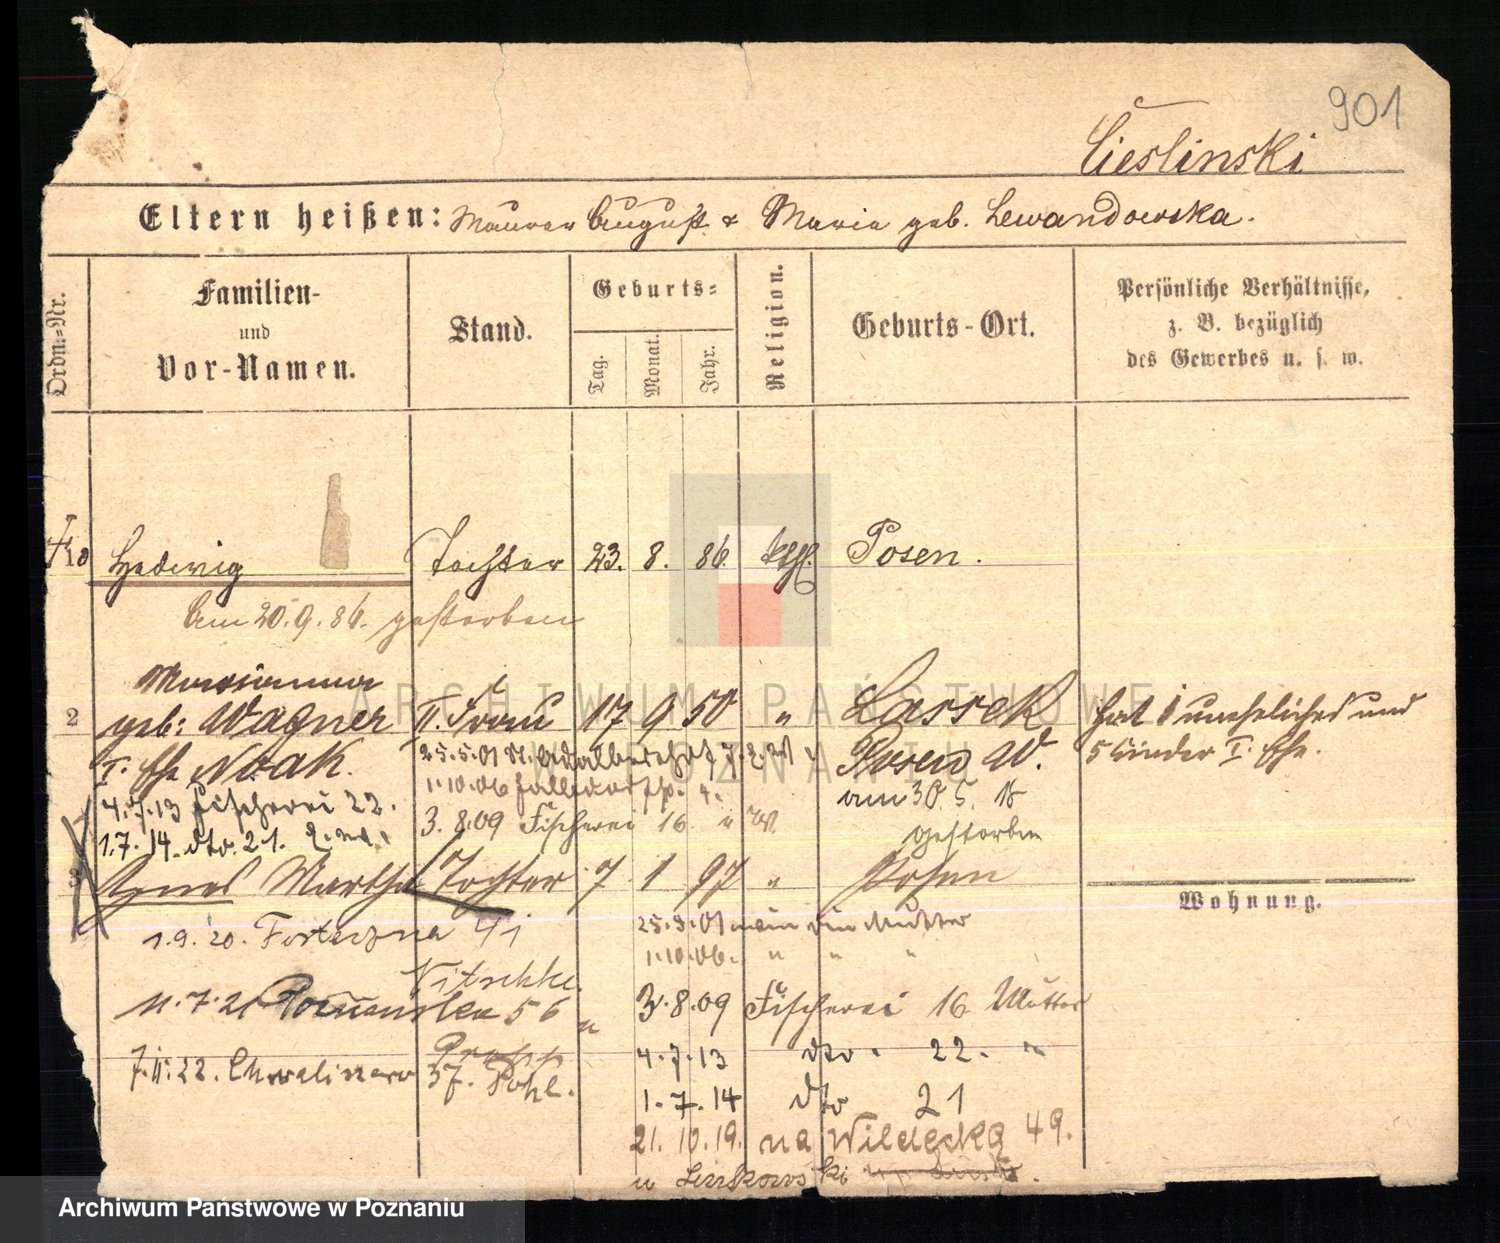 901
Cieslinski
Eltern heißen: Maurer August & Maria geb. Lewandowska.
Ordn.-Nr.
Familien- und Vor-Namen.
Stand.
Geburts-
Tag. Monat. Jahr.
Religion.
Geburts-Ort.
Persönliche Verhältnisse,
z. B. bezüglich
des Gewerbes u. s. w.
Hedwig Tochter 23. 8. 86. kthl. Posen.
Am 20.9.86. gestorben
Marianna
2 geb: Wagner II. Frau 17 9 50 " Lassek hat 1 uneheliches und
I. Ehe Noak. Posen W. 5 Kinder I. Ehe.
25.5.01 St. Adalbertstr
1.10.06
am 30.5.18
4.7.13 Fischerei 22. 3.8.09 Fischerei 16 " W.
gestorben
1.7.14. dto. 21.
3 Agnes Martha Tochter 7 1 97 " Posen
Wohnung.
25.5.01 wie die Mutter
1.9.20. Forteczna
1.10.06. " " "
Nitschke.
11.7.21 56 3.8.09 Fischerei 16 Mutter
4.7.13 dto. 22. "
7.11.22. Chwaliszewo 37. Pohl.
1.7.14 dto 21
21.10.19. na Wildecka 49.
u
ARCHIWUM PAŃSTWOWE
W POZNANIU
Archiwum Państwowe w Poznaniu